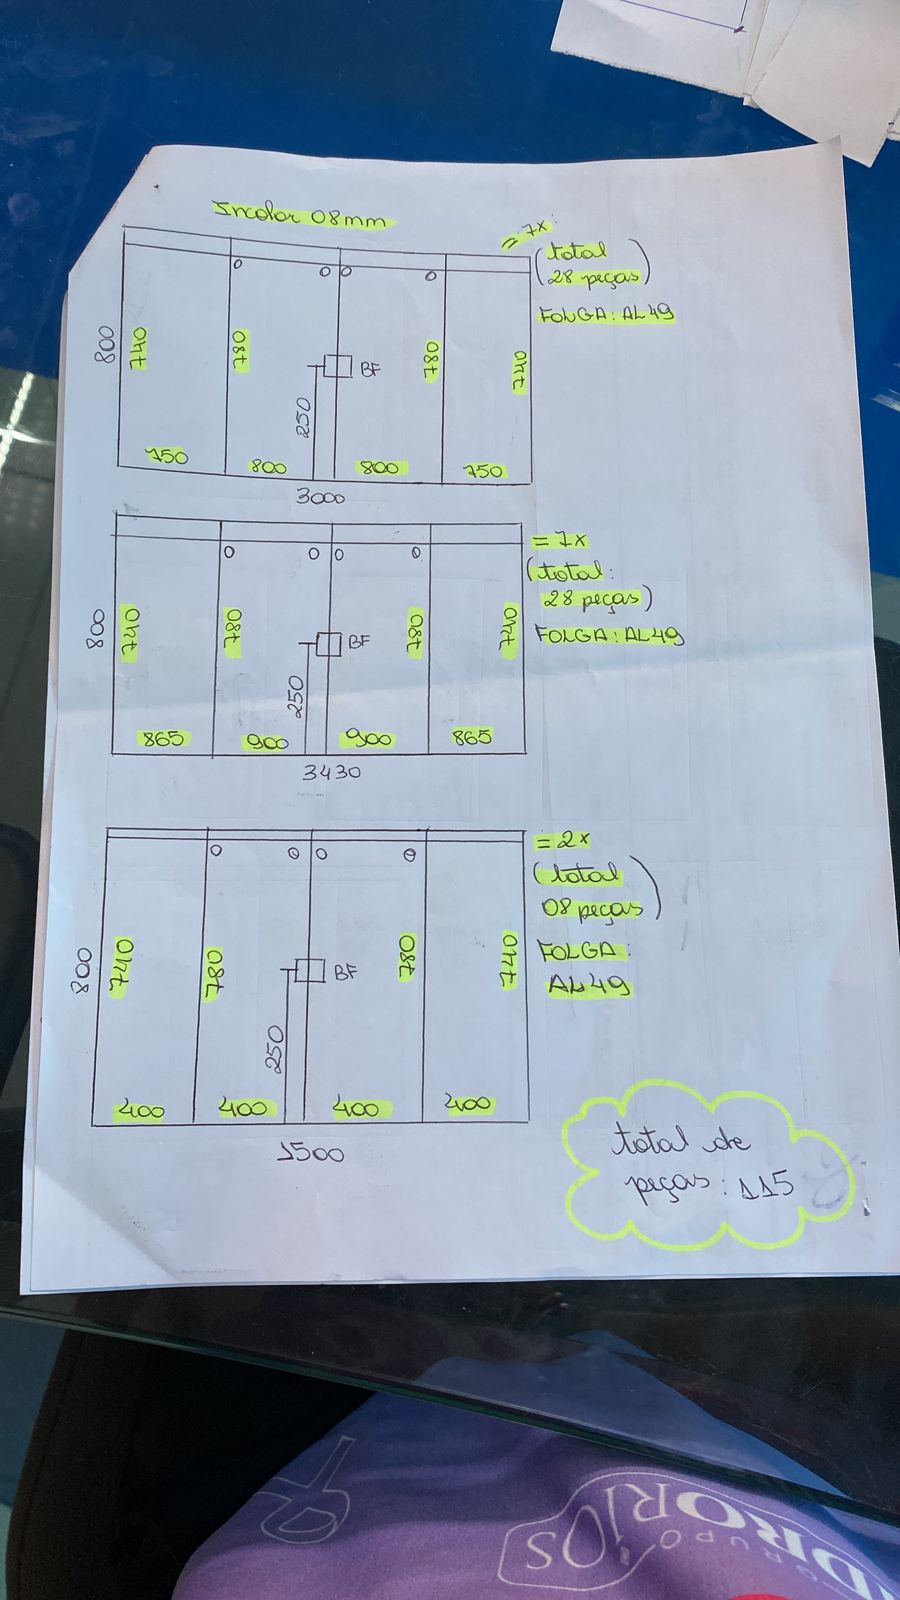 Incolor 08mm
= 7x
(total
28 peças)
FOLGA: AL49
800
740
780
780
740
BF
250
750
800
800
750
3000
= 7x
(total:
28 peças)
FOLGA: AL49
800
740
780
780
740
BF
250
865
900
900
865
3430
= 2x
(total
08 peças)
FOLGA:
AL49
800
740
780
780
740
BF
250
400
400
400
400
1500
total de
peças: 115
GRUPO